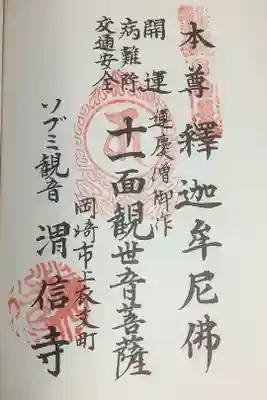 本尊釋迦牟尼佛
運慶僧御作
開運
病難除
交通安全
十一面観世音菩薩
岡崎市上衣文町
ソブミ観音
渭信寺